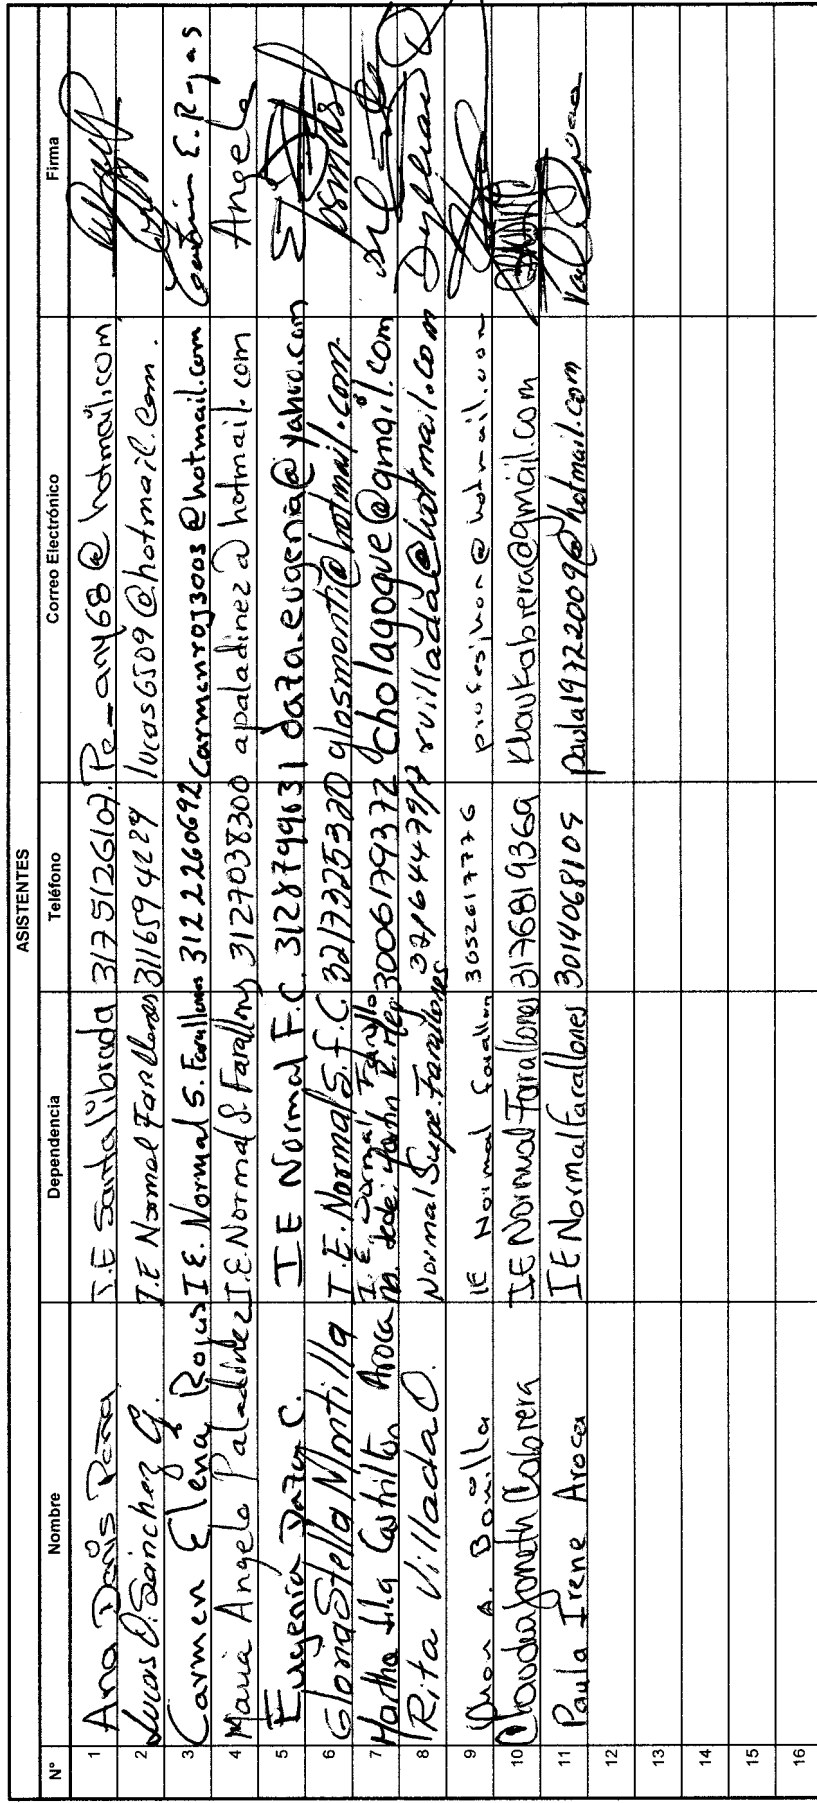 ASISTENTES
N° Nombre Dependencia Teléfono Correo Electrónico Firma
1 Ana Denis Peña I.E Santa librada 3175126107 Pe_any68@hotmail.com
2 Lucas O. Sánchez G. I.E Normal Farallones 3116594229 lucas6509@hotmail.com.
3 Carmen Elena Rojas I.E. Normal S. Farallones 3122260692 Carmenroj3003@hotmail.com Carmen E. Rojas
4 Maria Angela Paladinez I.E. Normal S. Farallons 3127038300 apaladinez@hotmail.com Angela
5 Eugenia Daza C. IE Normal F.C. 3128799631 daza.eugenia@yahoo.com
6 Gloria Stella Montilla I.E. Normal S.F.C. 3217325320 glosmonti@hotmail.com
7 Martha Lilia Castrillon Aroca I.E. Normal Farallo 3006179372 cholagogue@gmail.com
8 Rita Villada O. Normal Supe. Farallones 3216447917 rvillada@hotmail.com
9 A. Bonilla IE Normal Farallon 3052617776 profesjhon@hotmail.com
10 Claudia Janeth Cabrera IE Normal Farallones 3176819369 Klaukabrera@gmail.com
11 Paula Irene Aroca IE Normal Farallones 3014068105 paula19722009@hotmail.com
12
13
14
15
16